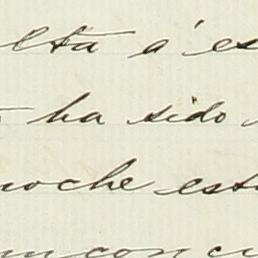 lta á es
ha sido
noche est
con